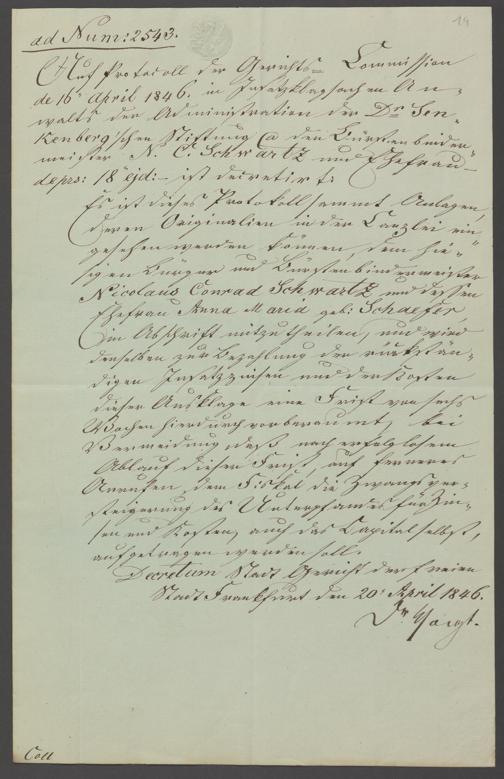 19
ad Num: 2543.
Auf Protocoll der Gerichts- Commission
de 16' April 1846. in Insatzklagsachen An-
walts der Administration der Dr. Sen-
kenberg'schen Stiftung @ den Bürstenbinder-
meister N. C. Schwartz und Ehefrau
de prs: 18' ejd: ist decretirt:
Es ist dieses Protokoll sammt Anlagen,
deren Originalien in der Canzlei ein-
gesehen werden können, dem hie-
sigen Bürger und Bürstenbindermeister
Nicolaus Conrad Schwartz und dessen
Ehefrau Anna Maria geb: Schaefer,
in Abschrift mitzutheilen, und wird
denselben zur Bezahlung der rückstän-
digen Insatzzinsen und der Kosten
dieser Ausklage eine Frist von sechs
Wochen hierdurch vorberaumt, bei
Vermeidung, daß nach erfolglosem
Ablauf dieser Frist, auf ferneres
Anrufen, dem Fiskal die Zwangsver-
steigerung des Unterpfandes für Zin-
sen und Kosten, auch das Capital selbst,
aufgetragen werden soll.
Decretum Stadt Gericht der freien
Stadt Frankfurt den 20' April 1846.
Dr. Voigt.
Coll